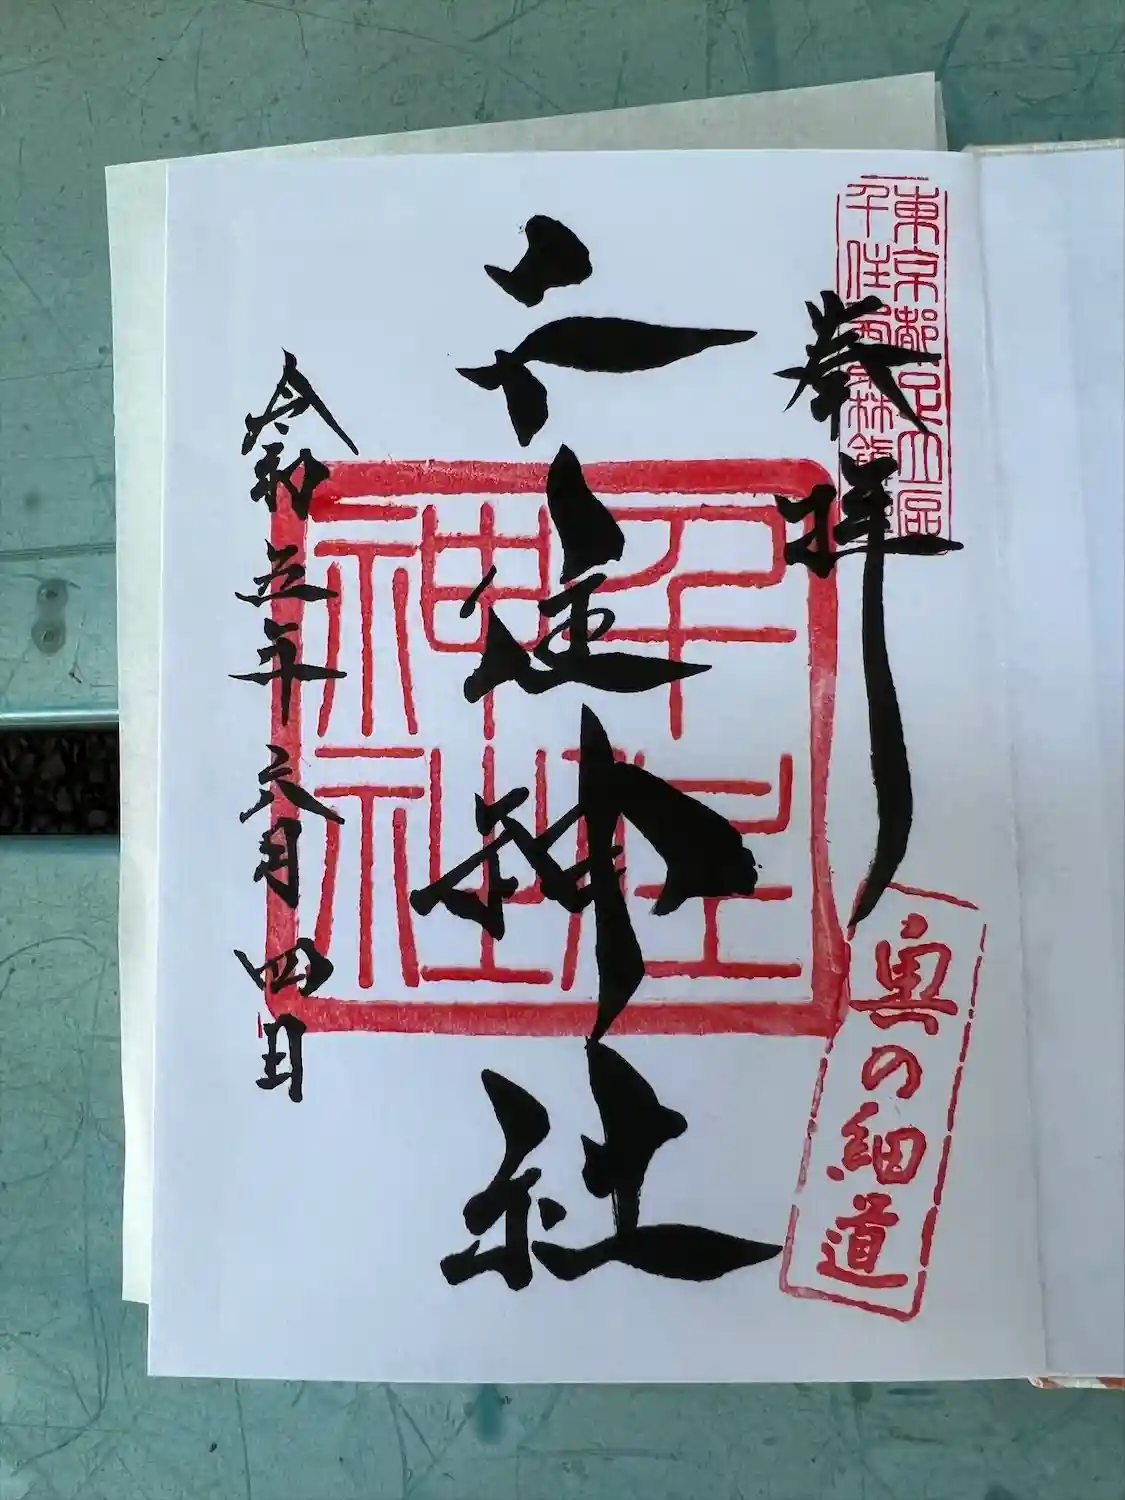 東京都足立区
千住
奉拝
奥の細道
千住神社
千住
神社
令和五年六月四日